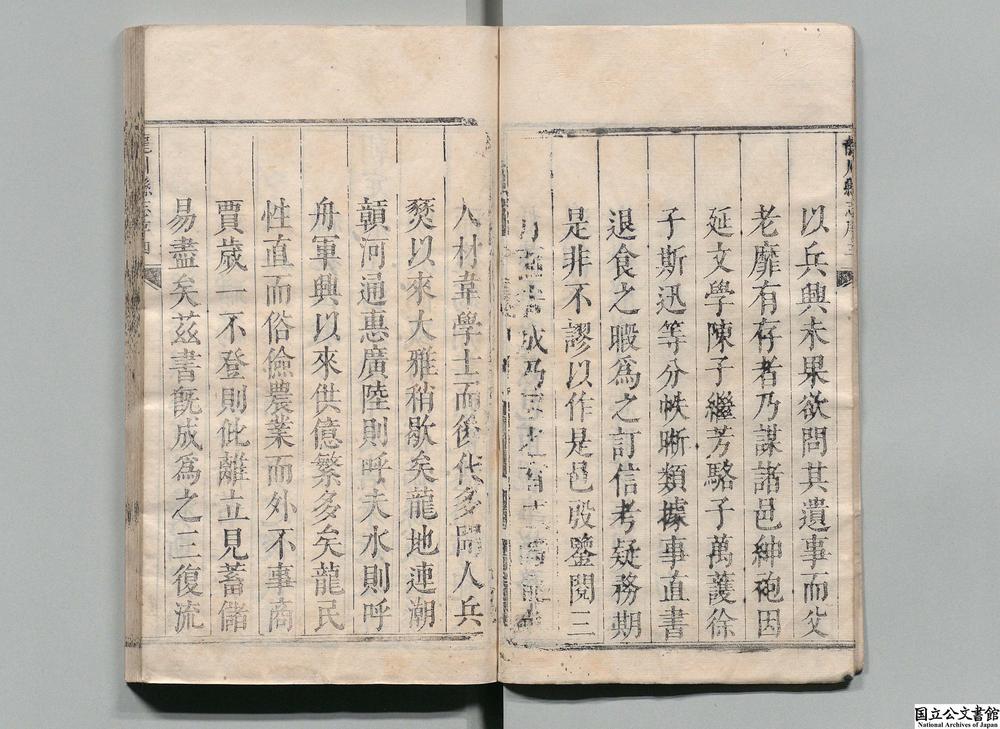 以兵興未果欲問其遺事而父
老靡有存者乃謀諸邑紳砲因
延文學陳子繼芳駱子萬護徐
子斯迅等分帙晰類據事直書
退食之暇為之訂信考疑務期
是非不謬以作是邑殷鑒閱三
成乃
人材韋學士而後代多聞人兵
燹以來大雅稍歇矣龍地連潮
贑河通惠廣陸則呼夫水則呼
舟軍興以來供億繁多矣龍民
性直而俗儉農業而外不事商
賈歲一不登則仳離立見蓄儲
易盡矣茲書旣成爲之三復流
龍川縣志
国立公文書館
National Archives of Japan